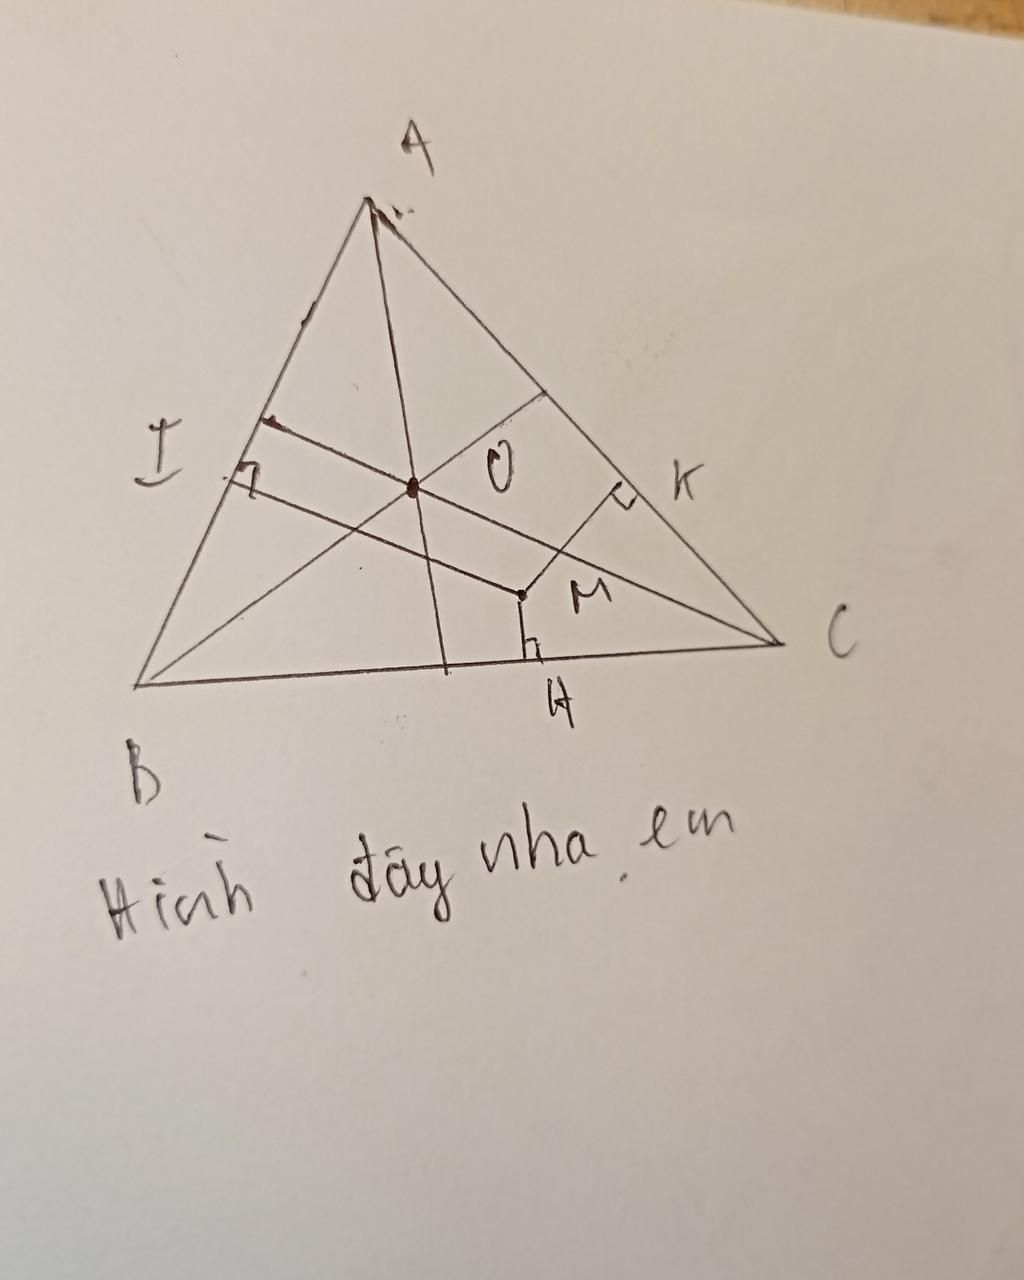 A
I
O
K
M
C
H
B
Hình đây nha em